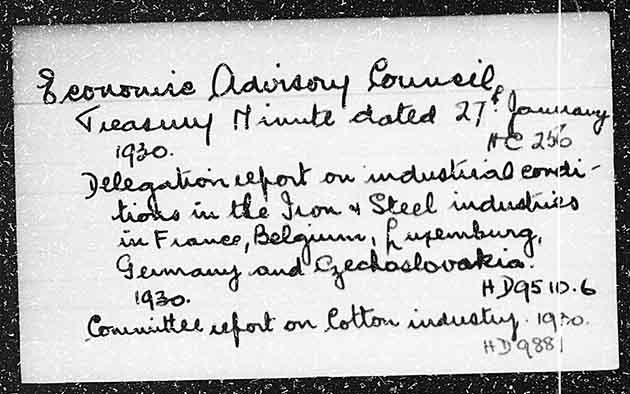 Economic Advisory Council
Treasury Minute dated 27th January
1930.
HC 256
Delegation report on industrial condi-
tions in the Iron & Steel industries
in France, Belgium, Luxemburg,
Germany and Czechoslovakia.
1930.
HD9510.6
Committee report on Cotton industry. 1930.
HD9881